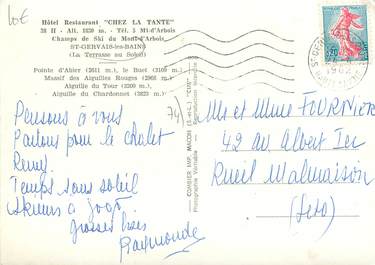 10€
Hôtel Restaurant "CHEZ LA TANTE"
38 H - Alt. 1850 m. - Tél. 5 Mt-d'Arbois
Champs de Ski du Mont-d'Arbois
ST-GERVAIS-les-BAINS
(La Terrasse au Soleil)
Pointe d'Abier (2611 m.), le Buet (3109 m.)
Massif des Aiguilles Rouges (2966 m)
Aiguille du Tour (3509 m.)
Aiguille du Chardonnet (3823 m.)
74)
Pensons à vous
Partons pour le chalet
Remy.
Temps sans soleil
Skieurs à gogo.
grosses bises
Raymonde
COMBIER IMP. MACON (S.-et-L.) "CIM"
Photographie Véritable
1962
Mr et Mme FOURNIER
42 av. Albert Ier
Rueil Malmaison